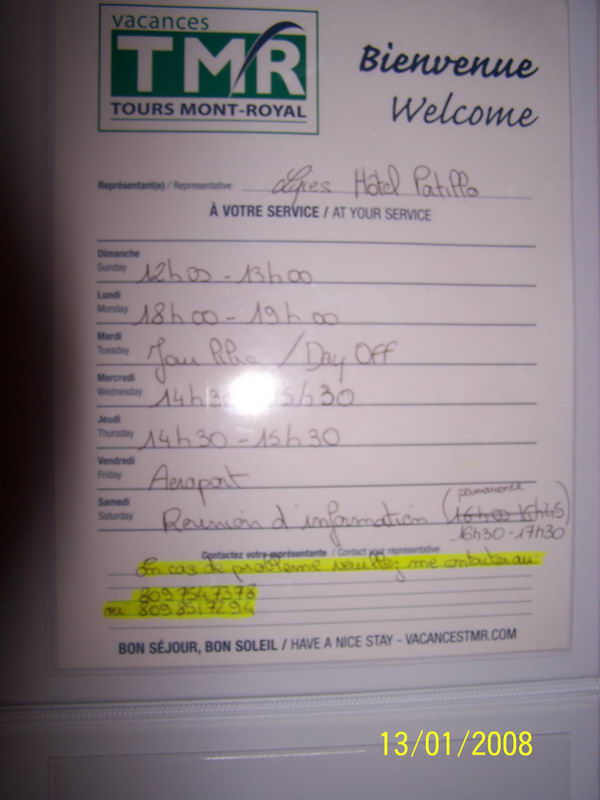 vacances
TMR
TOURS MONT-ROYAL
Bienvenue
Welcome
Représentant(e) / Representative: Hôtel Patilla
À VOTRE SERVICE / AT YOUR SERVICE
Dimanche
Sunday 12h00 - 13h00
Lundi
Monday 18h00 - 19h00
Mardi
Tuesday Jour libre / Day Off
Mercredi
Wednesday 14h30 15h30
Jeudi
Thursday 14h30 - 15h30
Vendredi
Friday Aeroport
Samedi
Saturday Reunion d'information (permanence
16h00 16h45)
16h30 - 17h30
Contactez votre représentante / Contact your representative
En cas de problème veuillez me contacter au:
809 7547378
ou 809 8517294
BON SÉJOUR, BON SOLEIL / HAVE A NICE STAY - VACANCESTMR.COM
13/01/2008